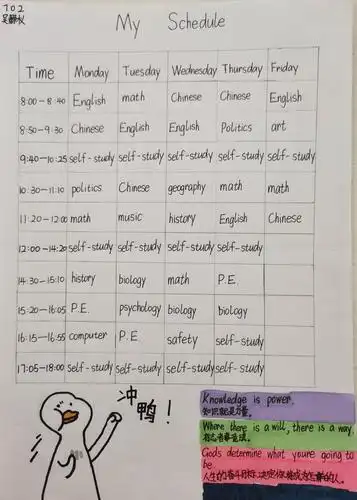 702
My Schedule
Time Monday Tuesday Wednesday Thursday Friday
8:00-8:40 English math Chinese Chinese English
8:50-9:30 Chinese English English Politics art
9:40-10:25 self-study self-study self-study self-study self-study
10:30-11:10 politics Chinese geography math math
11:20-12:00 math music history English Chinese
12:00-14:20 self-study self-study self-study self-study
14:30-15:10 history biology math P.E.
15:20-16:05 P.E. psychology biology biology
16:15-16:55 computer P.E. safety self-study
17:05-18:00 self-study self-study self-study self-study
冲
鸭!
Knowledge is power.
知识就是力量。
Where there is a will, there is a way.
有志者事竟成。
Gods determine what youre going to
be
人生的奋斗目标决定你将成为怎样的人。